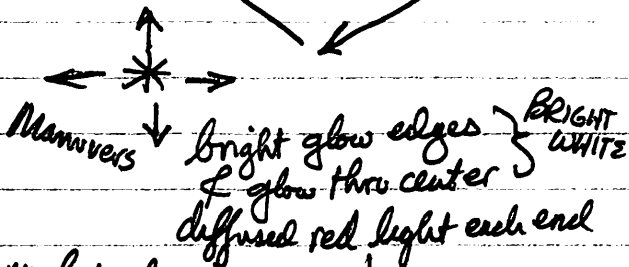 Manuvers
bright glow edges
& glow thru center
BRIGHT
WHITE
diffused red light each end